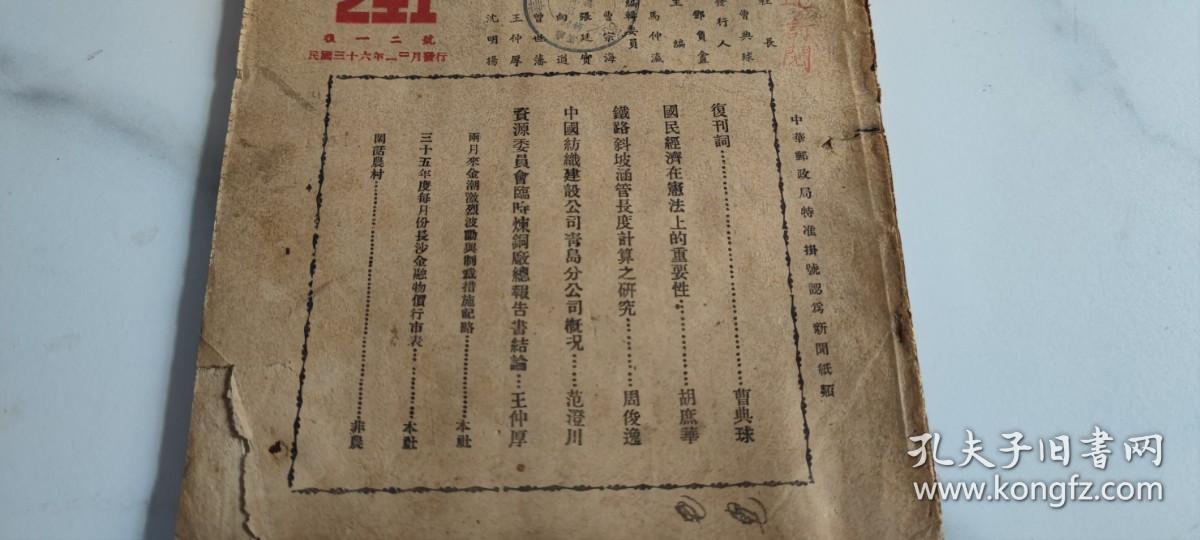 社長
曹典球
發行人
鄧賁盦
主編
馬仲瀛
編輯委員
曹宗海
張廷實
向道
曾世藩
王仲厚
沈明揚
復一二號
民國三十六年二月發行
中華郵政局特准掛號認爲新聞紙類
復刊詞……曹典球
國民經濟在憲法上的重要性……胡庶華
鐵路斜坡涵管長度計算之硏究……周俊逸
中國紡織建設公司靑島分公司概况……范澄川
資源委員會臨時煉銅廠總報告書結論…王仲厚
兩月來金潮激烈波動與制裁措施記略……本社
三十五年度每月份長沙金融物價行市表……本社
閑話農村……非農
孔夫子旧书网
www.kongfz.com